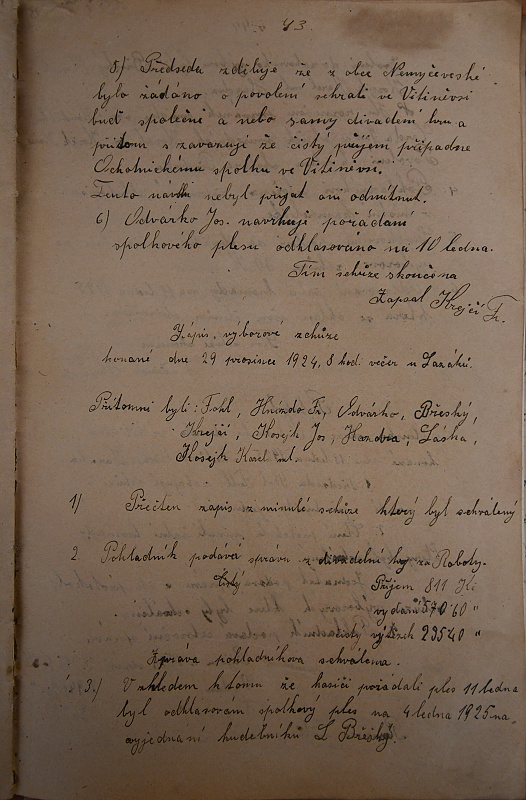 43.
5) Předseda zdiluje že z obce Nemyčeveské
bylo žádáno o povolení sehrati ve Vitiněvsi
buď společni a nebo samy divadelní hru a
přitom s zavazují že čistý příjem připadne
Ochotnickému spolku ve Vitiněvsi.
Tento návrh nebyl přijat ani odmítnut.
6) Odvárko Jos. navrhuje pořádaní
spolkového plesu odhlasováno na 10 ledna.
Tím schůze skončena
Zapsal Krejčí Fr.
Zápis, výborové schůze
konané dne 29 prosince 1924, 8 hod. večer u Lazáků.
Přítomni byli: Fohl, Hnízdo Fr, Odvárko, Břeský,
Krejčí, Kosejk Jos, Handra, Láska,
Kosejk Karel ml.
1) Přečten zapis z minulé schůze který byl schválený
2. Pokladník podává správu z divadelní hry za Roboty.
čistý Příjem 811 Kč
vydání 570 60 "
čistý výtěžek 235 40 "
Zpráva pokladníkova schválena.
3.) Vzhledem k tomu že hasiči pořádali ples 11 ledna
byl odhlasovam spolkový ples na 4 ledna 1925 na
vyjednaní hudebníků L Břeský.